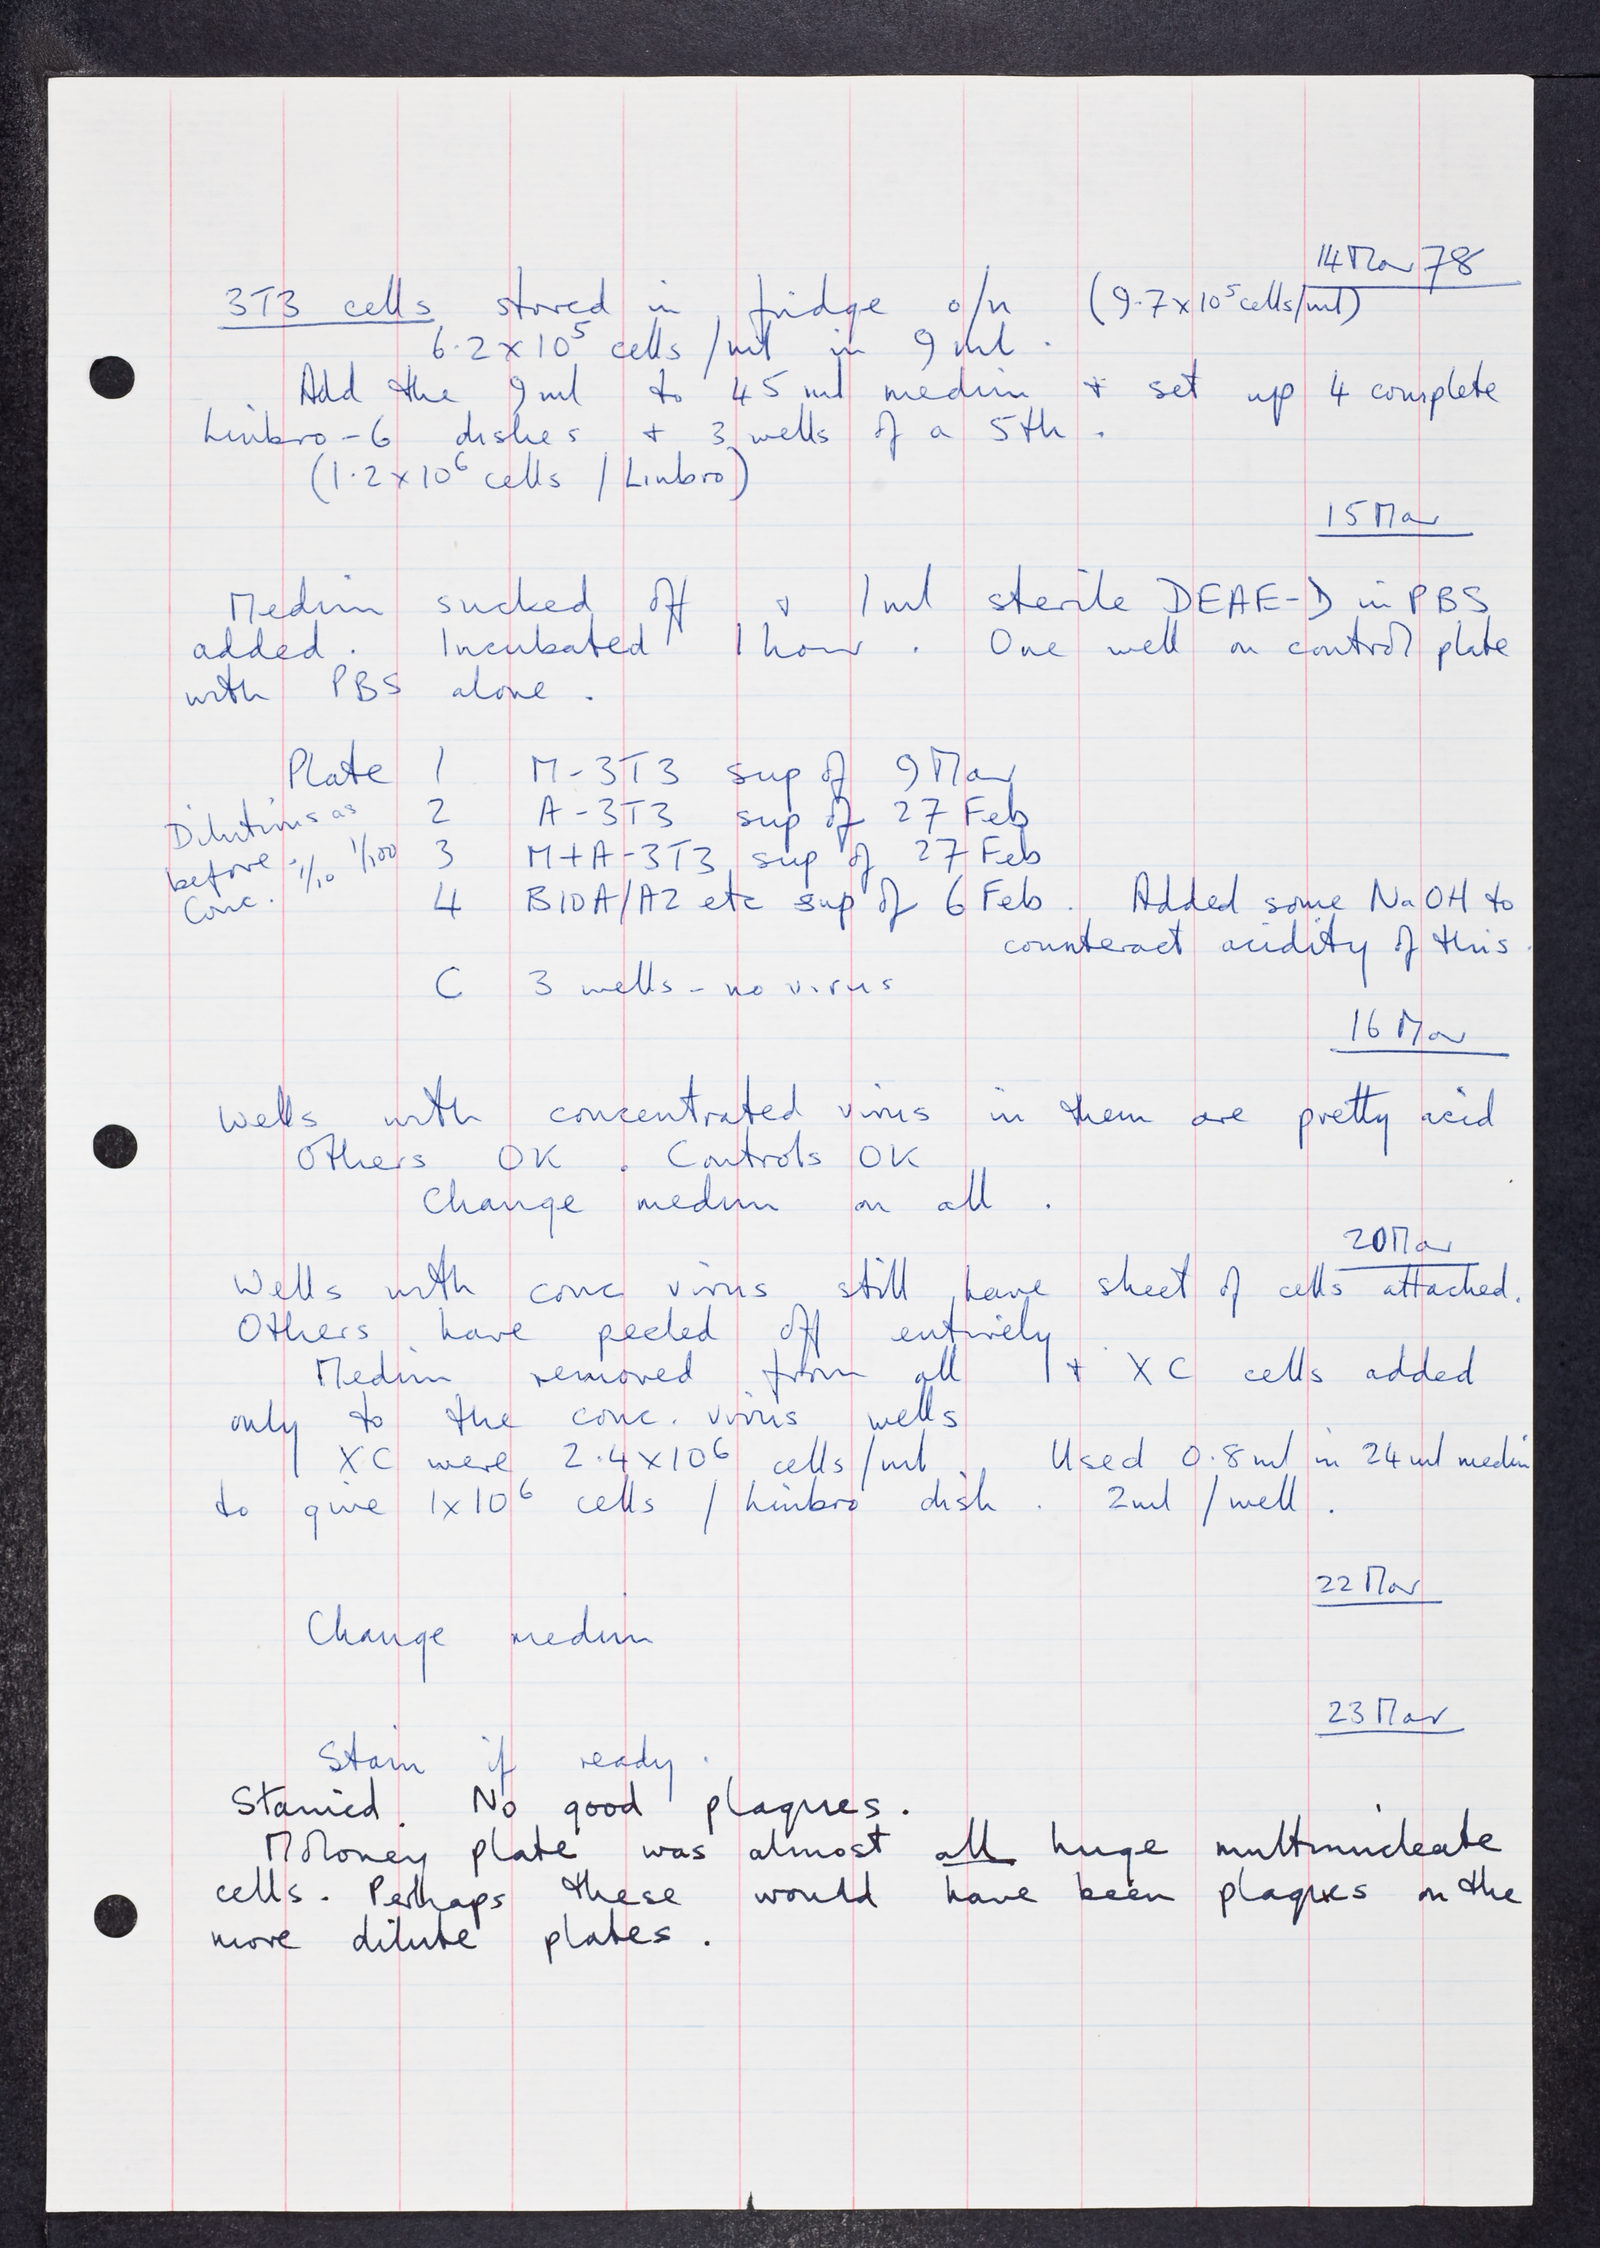 14 Mar 78
3T3 cells stored in fridge o/n (9.7 x 10⁵ cells/ml)
6.2 x 10⁵ cells/ml in 9 ml.
Add the 9 ml to 45 ml medium + set up 4 complete
Linbro-6 dishes + 3 wells of a 5th.
(1.2 x 10⁶ cells / Linbro)
15 Mar
Medium sucked off + 1 ml sterile DEAE-D in PBS
added. Incubated 1 hour. One well on control plate
with PBS alone.
Plate 1 M-3T3 sup of 9 Mar
2 A-3T3 sup of 27 Feb
3 M+A-3T3 sup of 27 Feb
4 B10A/A2 etc sup of 6 Feb. Added some NaOH to
counteract acidity of this.
Dilutions as
before :- 1/10 1/100
Conc.
C 3 wells - no virus
16 Mar
Wells with concentrated virus in them are pretty acid
Others OK. Controls OK
Change medium on all.
20 Mar
Wells with conc virus still have sheet of cells attached.
Others have peeled off entirely
Medium removed from all + XC cells added
only to the conc. virus wells
XC were 2.4 x 10⁶ cells/ml. Used 0.8 ml in 24 ml medium
to give 1 x 10⁶ cells / Linbro dish. 2 ml / well.
22 Mar
Change medium
23 Mar
Stain if ready.
Stained. No good plaques.
Moloney plate was almost all huge multinucleate
cells. Perhaps these would have been plaques on the
more dilute plates.